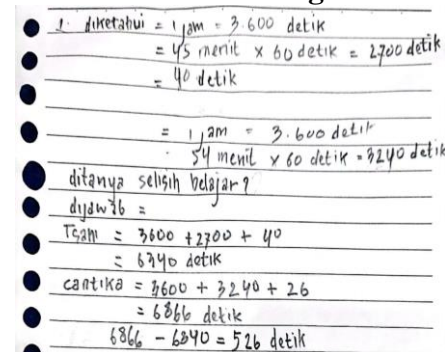 1. diketahui = 1 jam = 3.600 detik
= 45 menit x 60 detik = 2700 detik
= 40 detik
= 1 jam = 3.600 detik
54 menit x 60 detik = 3240 detik
ditanya selisih belajar?
dijawab =
Tsani = 3600 + 2700 + 40
= 6340 detik
cantika = 3600 + 3240 + 26
= 6866 detik
6866 - 6340 = 526 detik